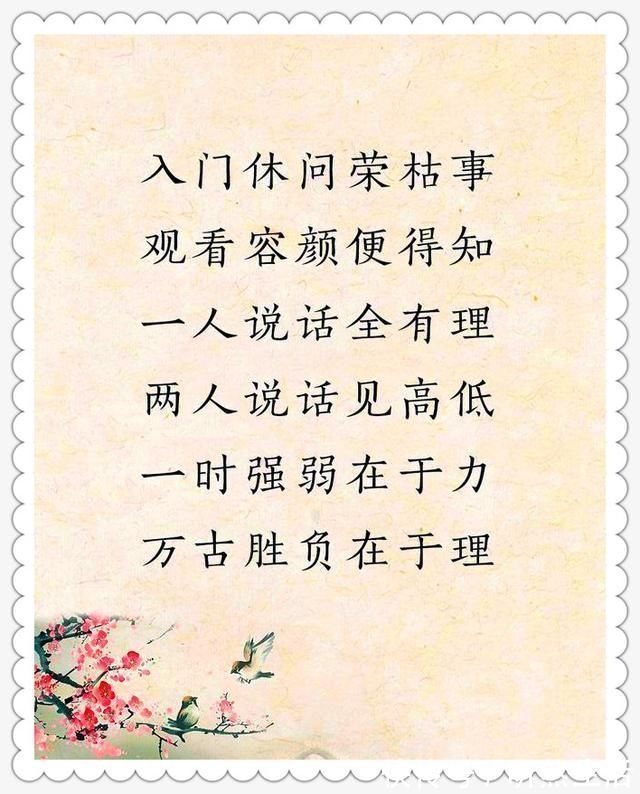 入门休问荣枯事
观看容颜便得知
一人说话全有理
两人说话见高低
一时强弱在于力
万古胜负在于理